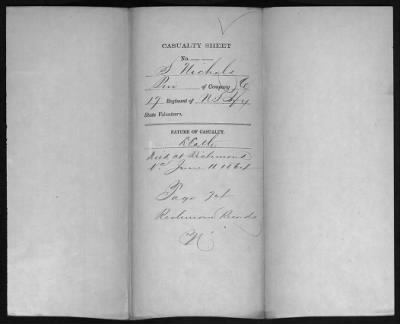 CASUALTY SHEET
No.
S Nichols
of Company
17 Regiment of
State Volunteers.
NATURE OF CASUALTY.
Death
Died at Richmond
Va June 11 1864
Page
Richmond Records